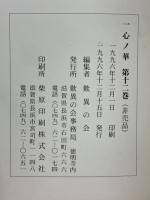 一心ノ華 第十二巻（非売品）
一九九六年十二月二日 印刷
一九九六年十二月十五日 発行
編集者 歎異の会
発行所 歎異の会事務局 徳明寺内
滋賀県長浜市石田町六六六
電話（〇七四九）六二ー〇六四六
印刷所 柴原印刷株式会社
滋賀県長浜市宮司町二一四
電話（〇七四九）六二ー〇六五一